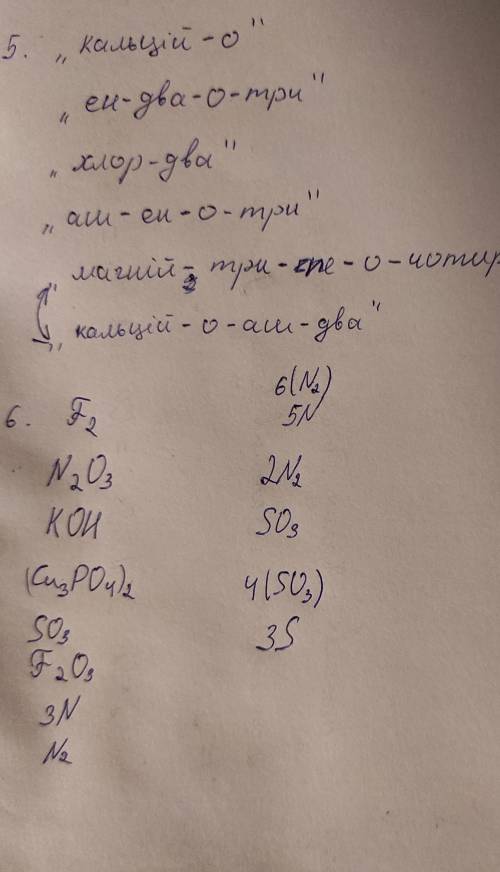 5. „кальцій-о"
„ен-два-о-три"
„хлор-два"
„аш-ен-о-три"
„магній-три-пе-о-чотир
„кальцій-о-аш-два"
6. F₂
N₂O₃
KOH
(Cu₃PO₄)₂
SO₃
F₂O₃
3N
N₂
6(N₂)
5N
2N₂
SO₃
4(SO₃)
3S